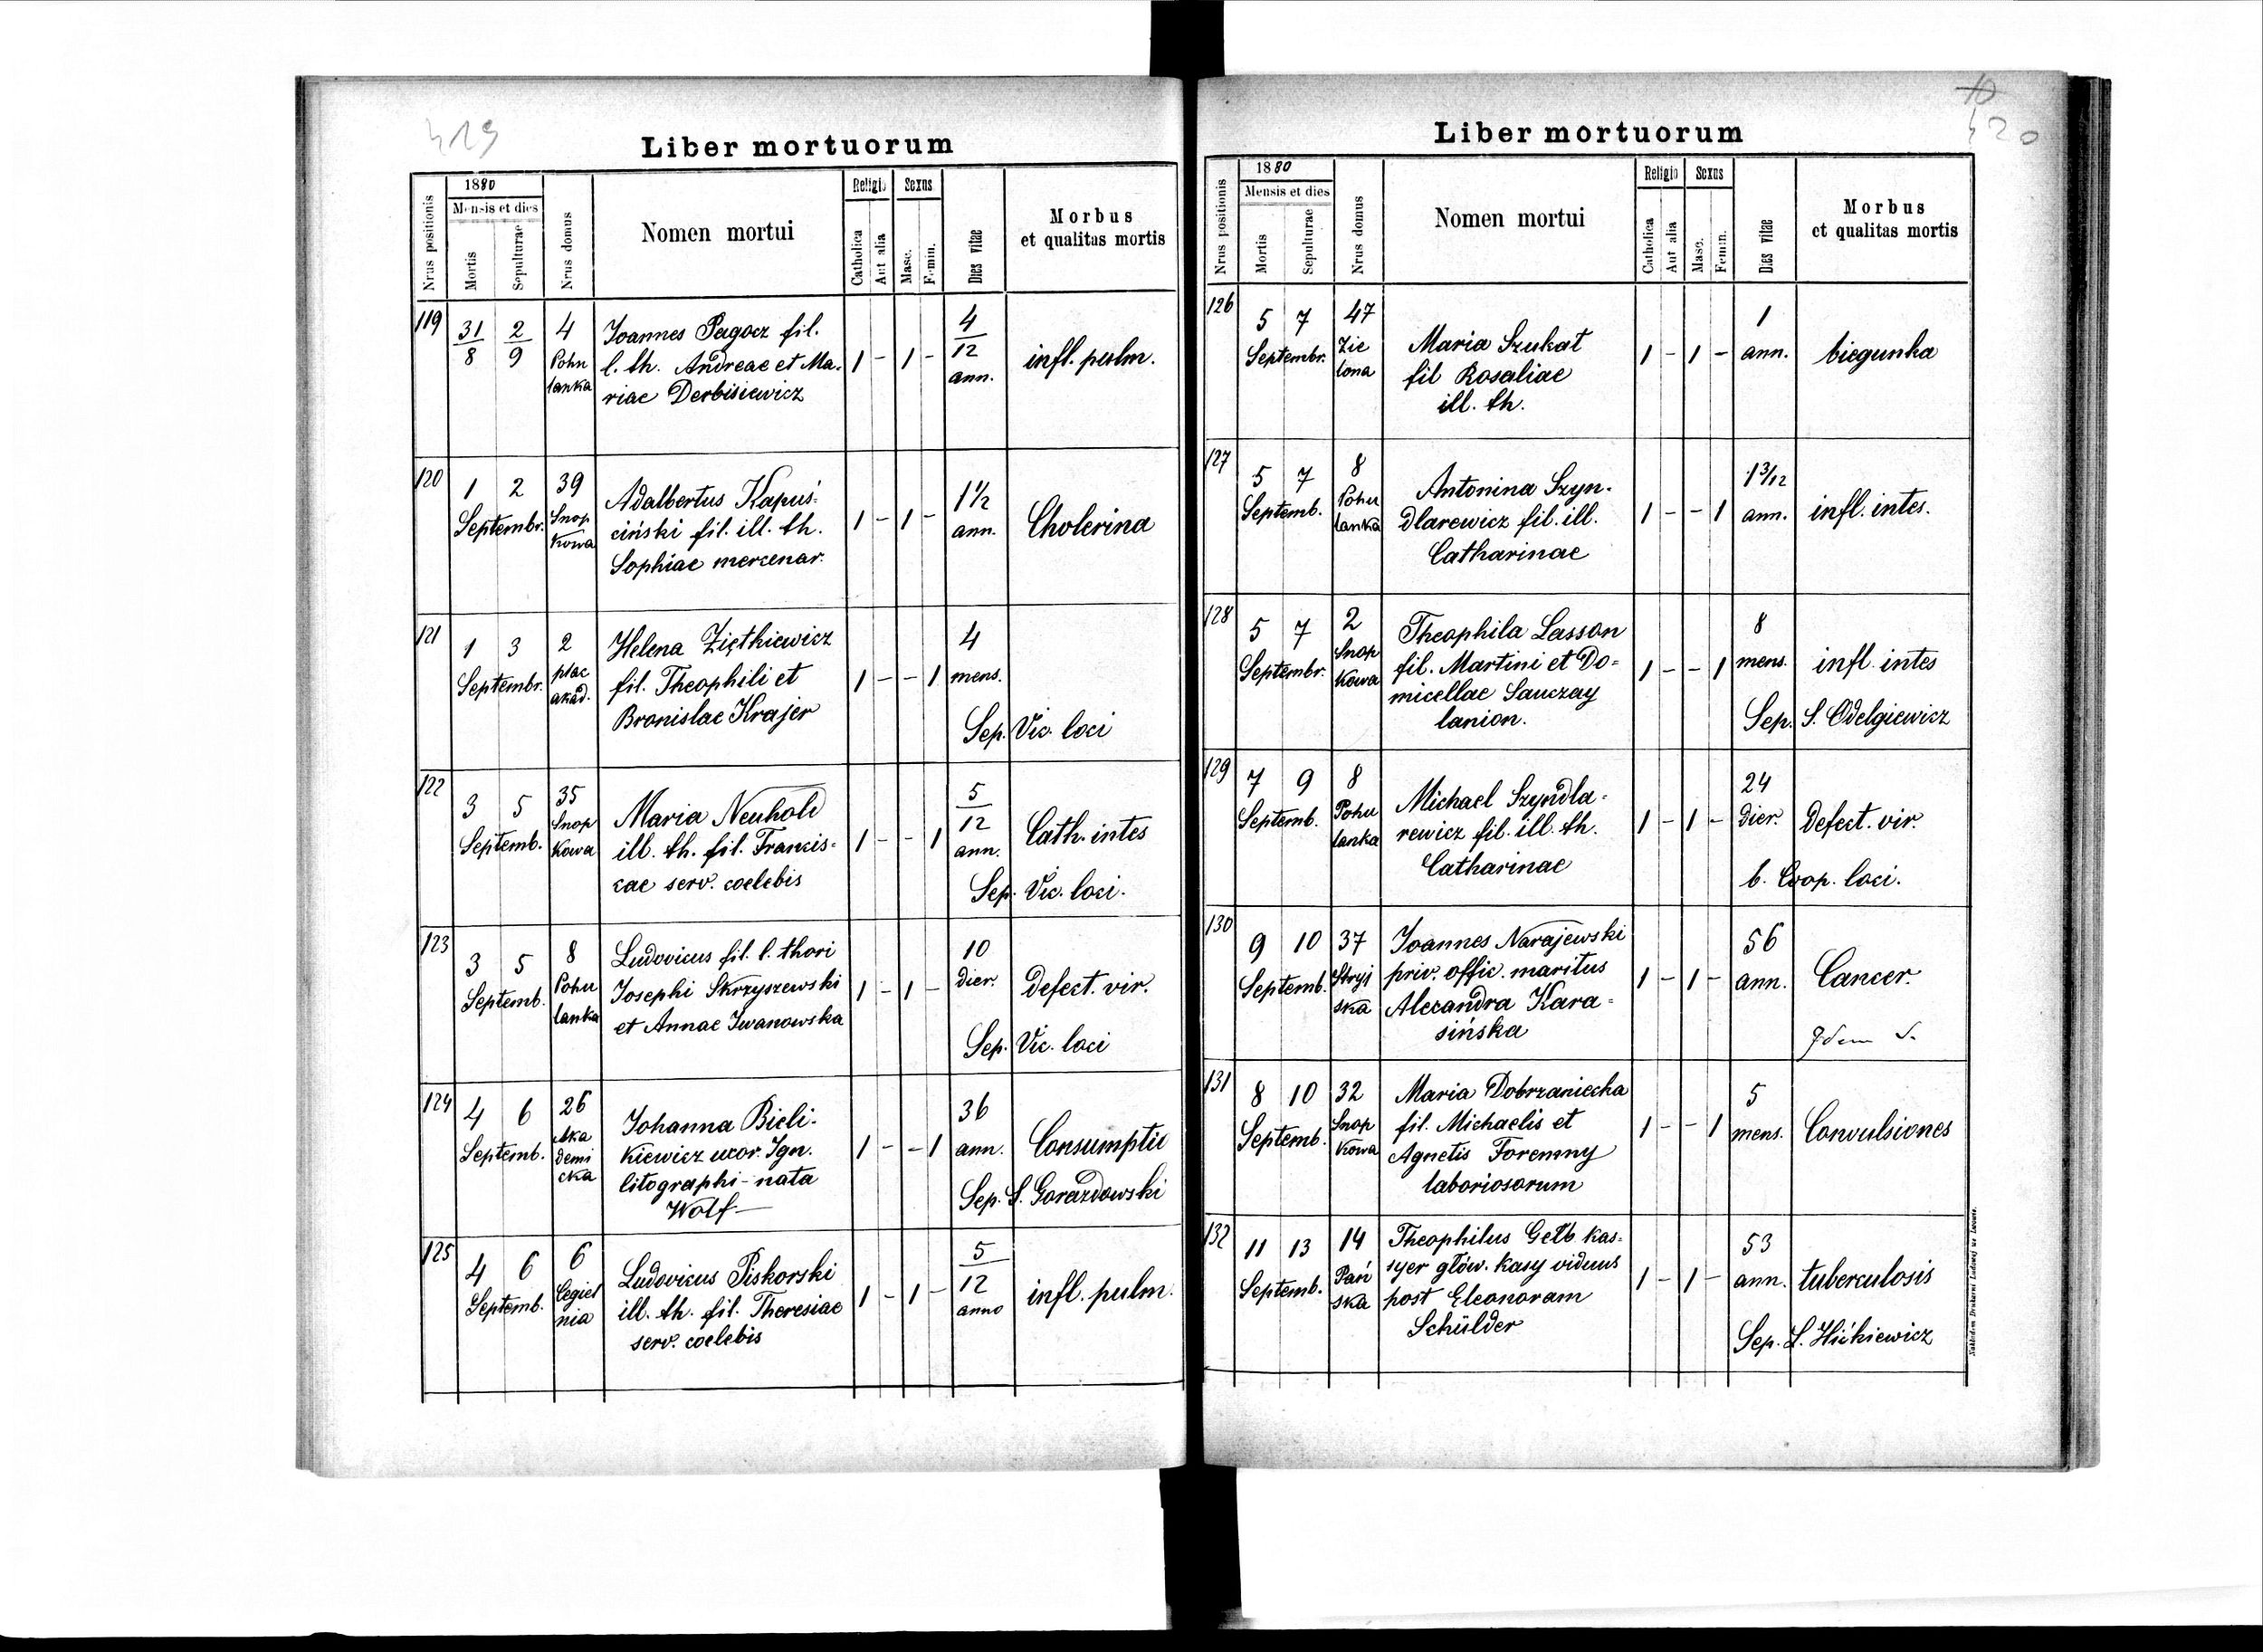 419
Liber mortuorum
Nrus positionis
1880
Mensis et dies
Mortis
Sepulturae
Nrus domus
Nomen mortui
Religio
Catholica
Aut alia
Sexus
Masc.
Femin.
Dies vitae
Morbus
et qualitas mortis
119
31/8
2/9
4
Pohu
lanka
Joannes Pagocz fil.
l. th. Andreae et Ma-
riae Derbisiewicz
1 - 1 -
4/12
ann.
infl. pulm.
120
1 2
Septembr.
39
Snop
kowa
Adalbertus Kapuś-
ciński fil. ill. th.
Sophiae mercenar.
1 - 1 -
1 1/2
ann.
Cholerina
121
1 3
Septembr.
2
plac
akad.
Helena Ziętkiewicz
fil. Theophili et
Bronislae Krajer
1 - - 1
4
mens.
Sep. Vic. loci
122
3 5
Septemb.
35
Snop
kowa
Maria Neuhold
ill. th. fil. Francis-
cae serv. coelebis
1 - - 1
5/12
ann.
Cath. intes
Sep. Vic. loci.
123
3 5
Septemb.
8
Pohu
lanka
Ludovicus fil. l. thori
Josephi Skrzyszewski
et Annae Iwanowska
1 - 1 -
10
dier.
Defect. vir.
Sep. Vic. loci
124
4 6
Septemb.
26
Aka
demi
cka
Johanna Bieli-
kiewicz uxor. Ign.
litographi - nata
Wolf
1 - - 1
36
ann.
Consumptio
Sep. S. Gorazdowski
125
4 6
Septemb.
6
Cegiel
nia
Ludovicus Piskorski
ill. th. fil. Theresiae
serv. coelebis
1 - 1 -
5/12
anno
infl. pulm.
420
Liber mortuorum
Nrus positionis
1880
Mensis et dies
Mortis
Sepulturae
Nrus domus
Nomen mortui
Religio
Catholica
Aut alia
Sexus
Masc.
Femin.
Dies vitae
Morbus
et qualitas mortis
126
5 7
Septembr.
47
Zie
lona
Maria Szukat
fil Rosaliae
ill. th.
1 - 1 -
1
ann.
biegunka
127
5 7
Septemb.
8
Pohu
lanka
Antonina Szyn-
dlarewicz fil. ill.
Catharinae
1 - - 1
1 3/12
ann.
infl. intes.
128
5 7
Septembr.
2
Snop
kowa
Theophila Lasson
fil. Martini et Do-
micellae Sauczay
lanion.
1 - - 1
8
mens.
infl. intes
Sep. S. Odelgiewicz
129
7 9
Septemb.
8
Pohu
lanka
Michael Szyndla-
rewicz fil. ill. th.
Catharinae
1 - 1 -
24
dier.
Defect. vir.
b. Coop. loci.
130
9 10
Septemb.
37
Stryj
ska
Joannes Narajewski
priv. offic. maritus
Alexandra Kara-
sińska
1 - 1 -
56
ann.
Cancer.
Idem S.
131
8 10
Septemb.
32
Snop
kowa
Maria Dobrzaniecka
fil. Michaelis et
Agnetis Foremny
laboriosorum
1 - - 1
5
mens.
Convulsiones
132
11 13
Septemb.
14
Pań
ska
Theophilus Gelb kas-
syer głów. kasy viduus
post Eleonoram
Schülder
1 - 1 -
53
ann.
tuberculosis
Sep. S. Hićkiewicz
Nakładem Drukarni Ludowej we Lwowie.